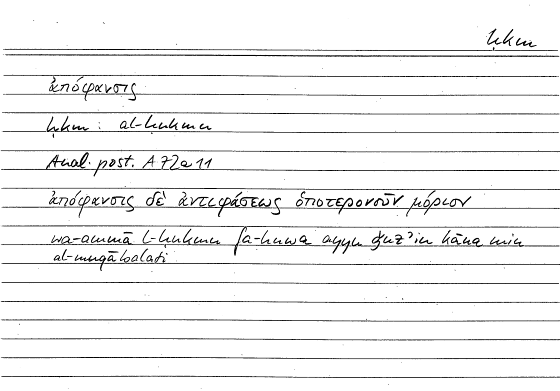 ḥkm
ἀπόφανσις
ḥkm : al-ḥukmu
Anal. post. A 72a 11
ἀπόφανσις δὲ ἀντιφάσεως ὁποτερονοῦν μόριον
wa-ammā l-ḥukmu fa-huwa ayyu ǧuzʾin kāna min
al-muqābalati